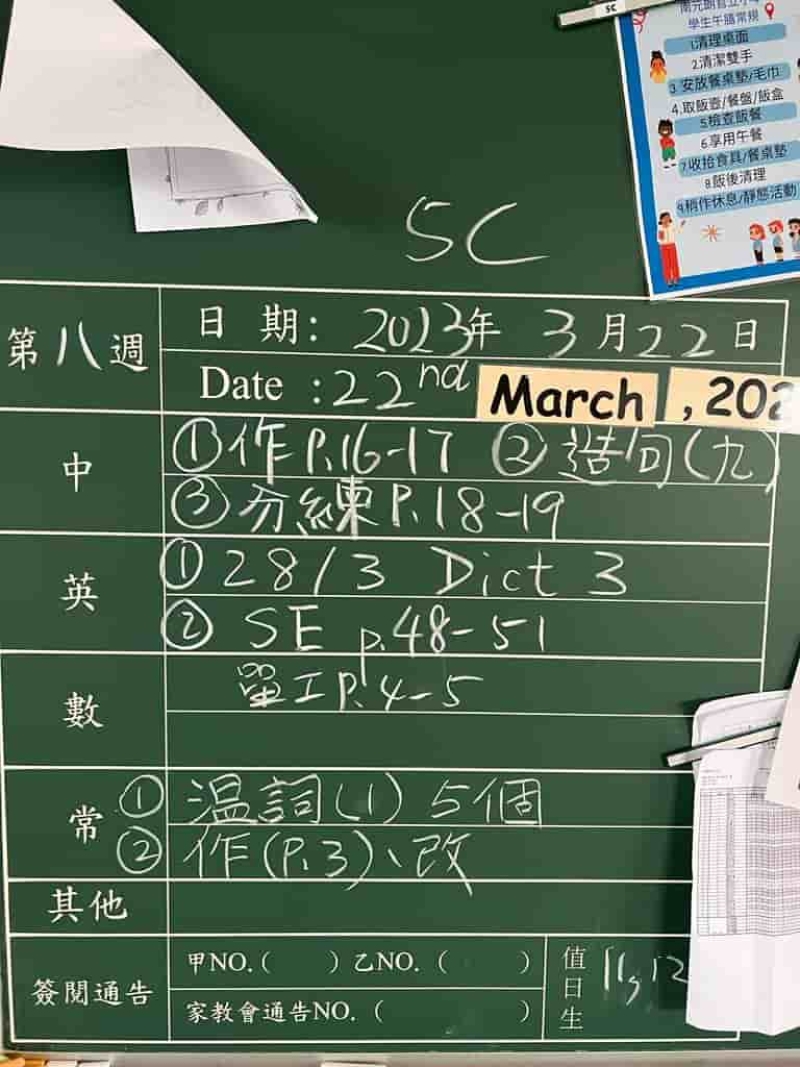 5C
學生午膳常規
1.清理桌面
2.清潔雙手
3.安放餐桌墊/毛巾
4.取飯壺/餐盤/飯盒
5.檢查飯餐
6.享用午餐
7.收拾食具/餐桌墊
8.飯後清理
9.稍作休息/靜態活動
5C
第八週
日期：2023年3月22日
Date：22nd March, 202
中
①作P.16-17 ②造句(九)
③分練P.18-19
英
①28/3 Dict 3
②SE p.48-51
數
單工P.4-5
常
①温詞(1) 5個
②作(P.3)、改
其他
簽閱通告
甲NO.( ) 乙NO.( )
家教會通告NO.( )
值日生 11, 12